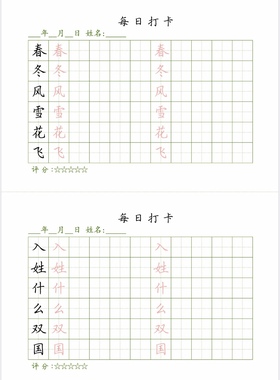 每日打卡
___年__月__日 姓名:_____
春 春 春
冬 冬 冬
风 风 风
雪 雪 雪
花 花 花
飞 飞 飞
评分:☆☆☆☆☆
每日打卡
___年__月__日 姓名:_____
入 入 入
姓 姓 姓
什 什 什
么 么 么
双 双 双
国 国 国
评分:☆☆☆☆☆